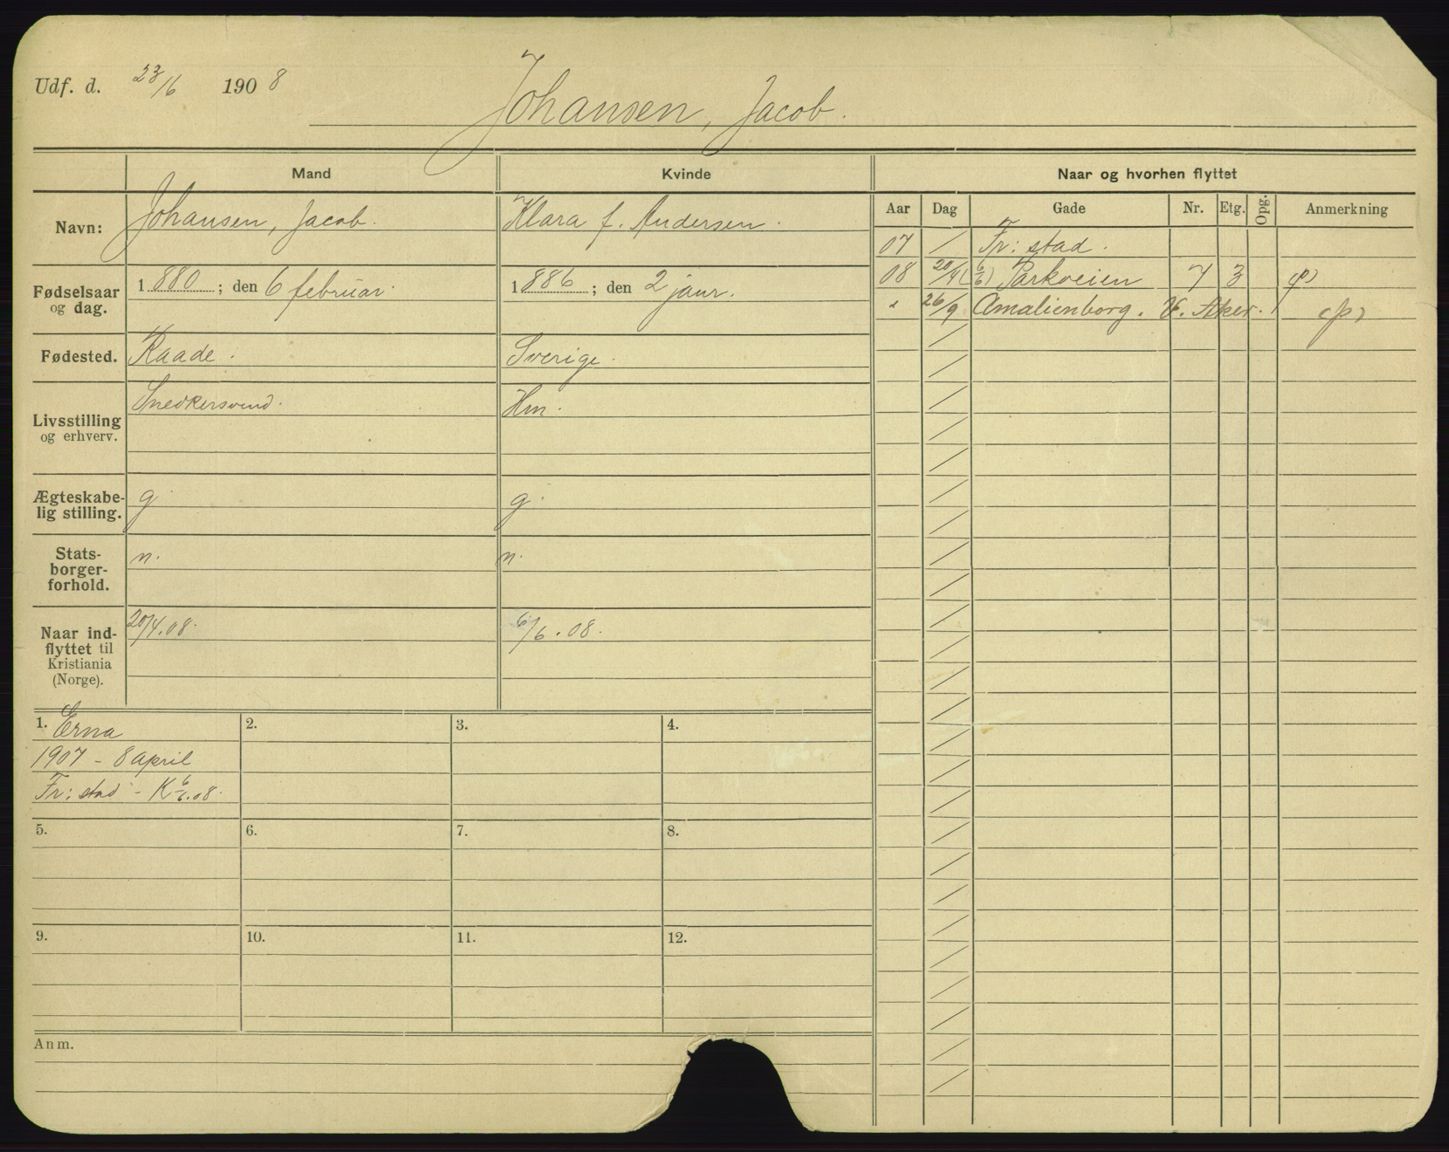 Udf. d. 23/6 1908
Johansen, Jacob.
Mand
Kvinde
Naar og hvorhen flyttet
Navn:
Johansen, Jacob.
Klara f. Andersen.
Aar
Dag
Gade
Nr.
Etg.
Opg.
Anmerkning
07 / Fr: stad.
08 20/4 (6/6) Parkveien 7 3
" 26/9 Amalienborg. V. Aker.
Fødselsaar
og dag.
1880; den 6 februar.
1886; den 2 januar.
Fødested.
Raade.
Sverige.
Livsstilling
og erhverv.
Snedkersvend.
Hm.
Ægteskabe-
lig stilling.
g.
g.
Stats-
borger-
forhold.
n.
n.
Naar ind-
flyttet til
Kristiania
(Norge).
20/4.08.
6/6.08.
1. Erna
1907 - 8 april
Fr: stad - K 6/6.08.
2.
3.
4.
5.
6.
7.
8.
9.
10.
11.
12.
Anm.